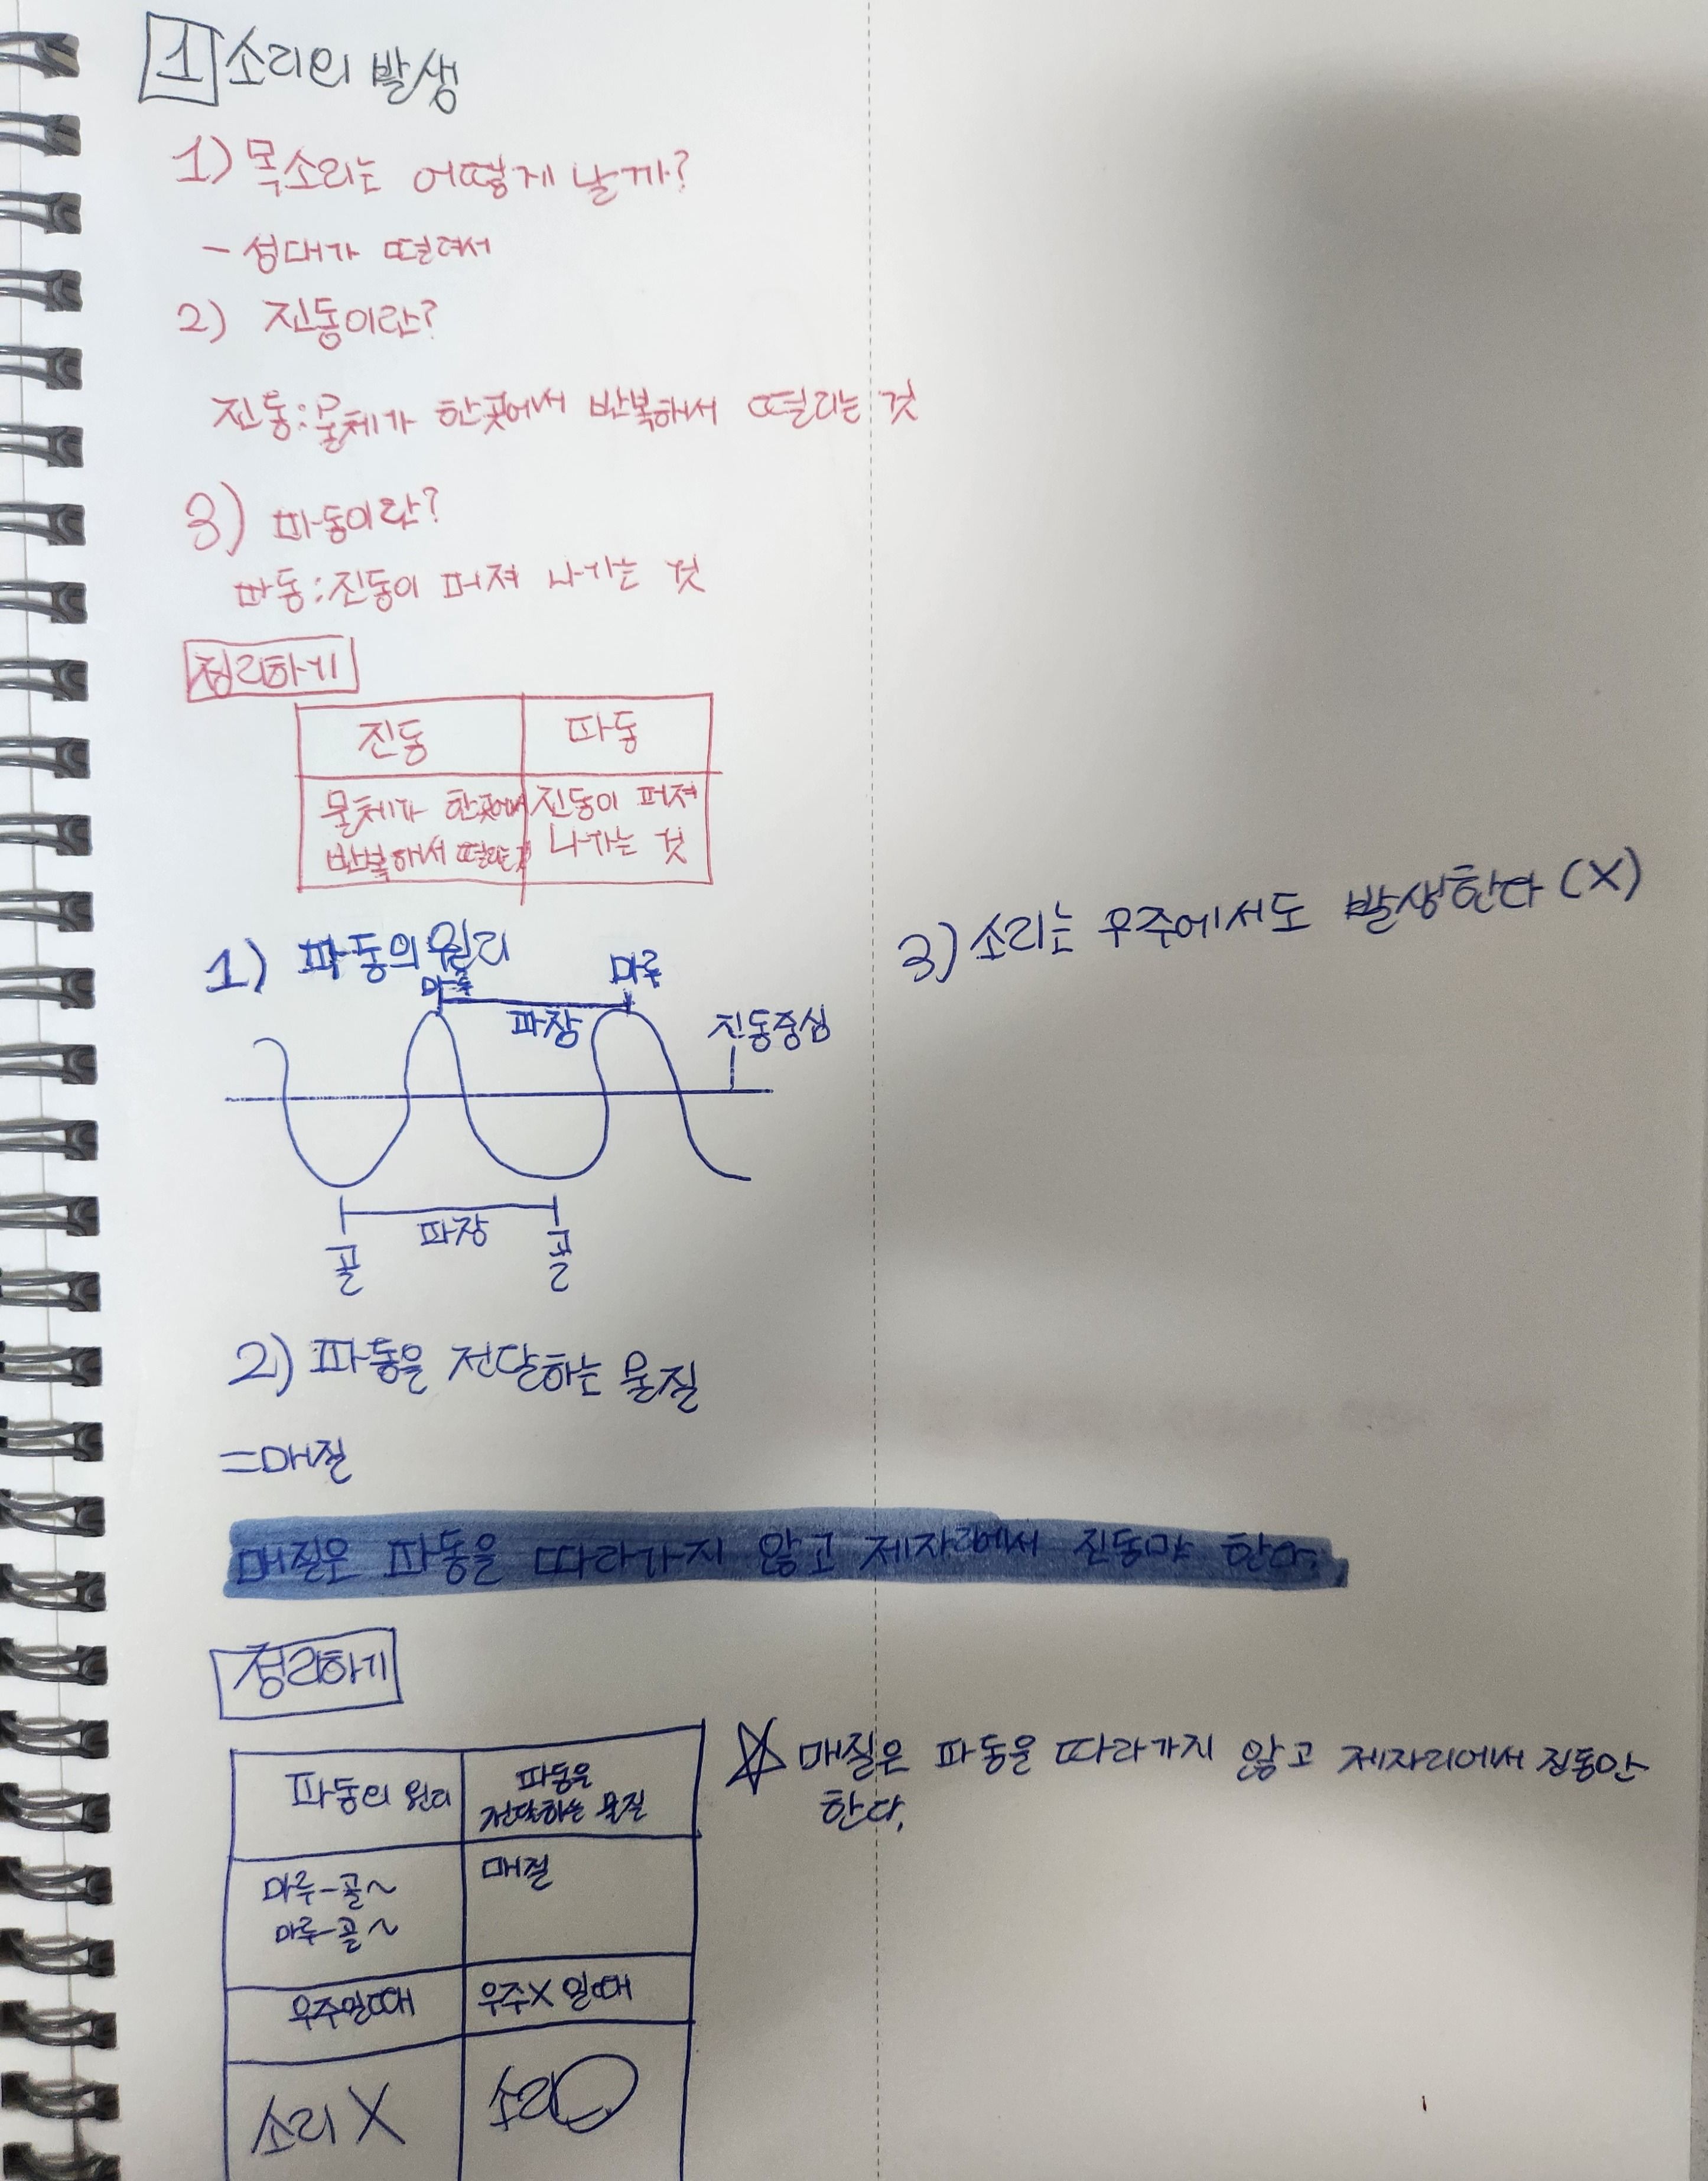 1 소리의 발생
1) 목소리는 어떻게 날까?
- 성대가 떨려서
2) 진동이란?
진동:물체가 한곳에서 반복해서 떨리는 것
3) 파동이란?
파동:진동이 퍼져 나가는 것
정리하기
진동 파동
물체가 한곳에서 진동이 퍼져
반복해서 떨리는 것 나가는 것
1) 파동의 원리
마루 마루
파장
진동중심
파장
골 골
3) 소리는 우주에서도 발생한다 (X)
2) 파동을 전달하는 물질
=매질
매질은 파동을 따라가지 않고 제자리에서 진동만 한다.
정리하기
파동의 원리 파동을
전달하는 물질
마루-골~ 매질
마루-골~
우주일때 우주X 일때
소리 X 소리O
☆ 매질은 파동을 따라가지 않고 제자리에서 진동만
한다.